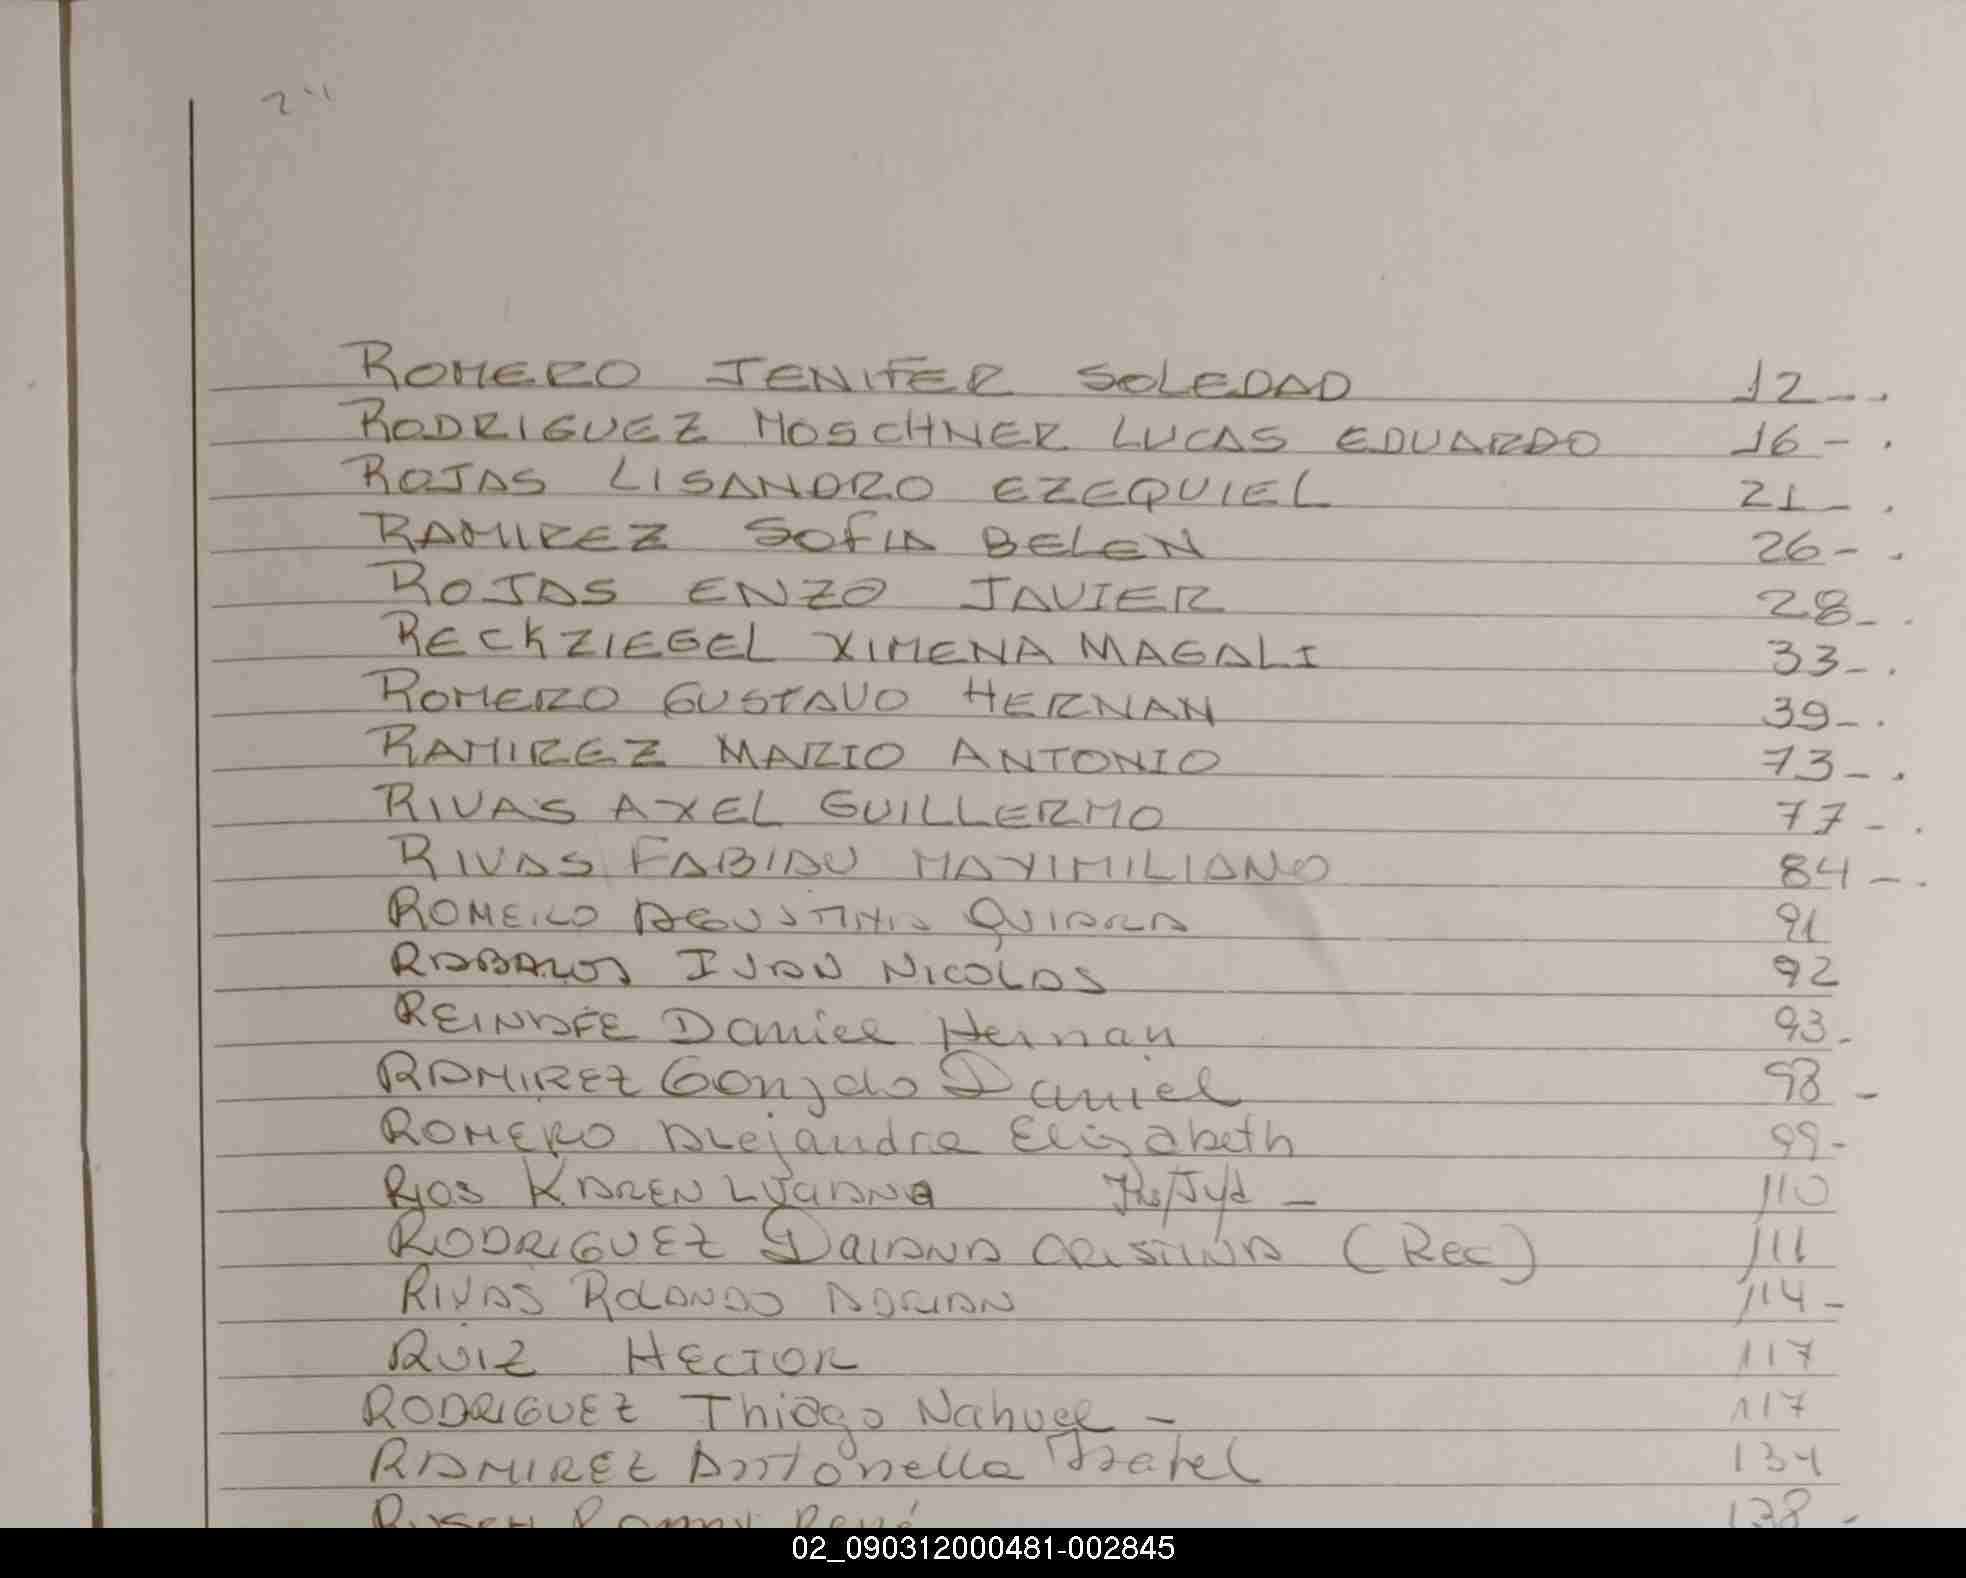 ROMERO JENIFER SOLEDAD 12 - .
RODRIGUEZ MOSCHNER LUCAS EDUARDO 16 - .
ROJAS LISANDRO EZEQUIEL 21 - .
RAMIREZ SOFIA BELEN 26 - .
ROJAS ENZO JAVIER 28 - .
RECKZIEGEL XIMENA MAGALI 33 - .
ROMERO GUSTAVO HERNAN 39 - .
RAMIREZ MARIO ANTONIO 73 - .
RIVAS AXEL GUILLERMO 77 - .
RIVAS FABIAN MAXIMILIANO 84 - .
ROMERO AGUSTINA QUIARA 91
IVAN NICOLAS 92
REINAFE Daniel Hernan 93 -
RAMIREZ Gonzalo Daniel 98 -
ROMERO Alejandra Elizabeth 99 -
RIOS KAREN LUJANA - 110
RODRIGUEZ DAIANA CRISTINA (Rec) 111
RIVAS ROLANDO ADRIAN 114 -
RUIZ HECTOR 117
RODRIGUEZ Thiago Nahuel - 117
RAMIREZ Antonella Isabel 134
René 138 -
02_090312000481-002845